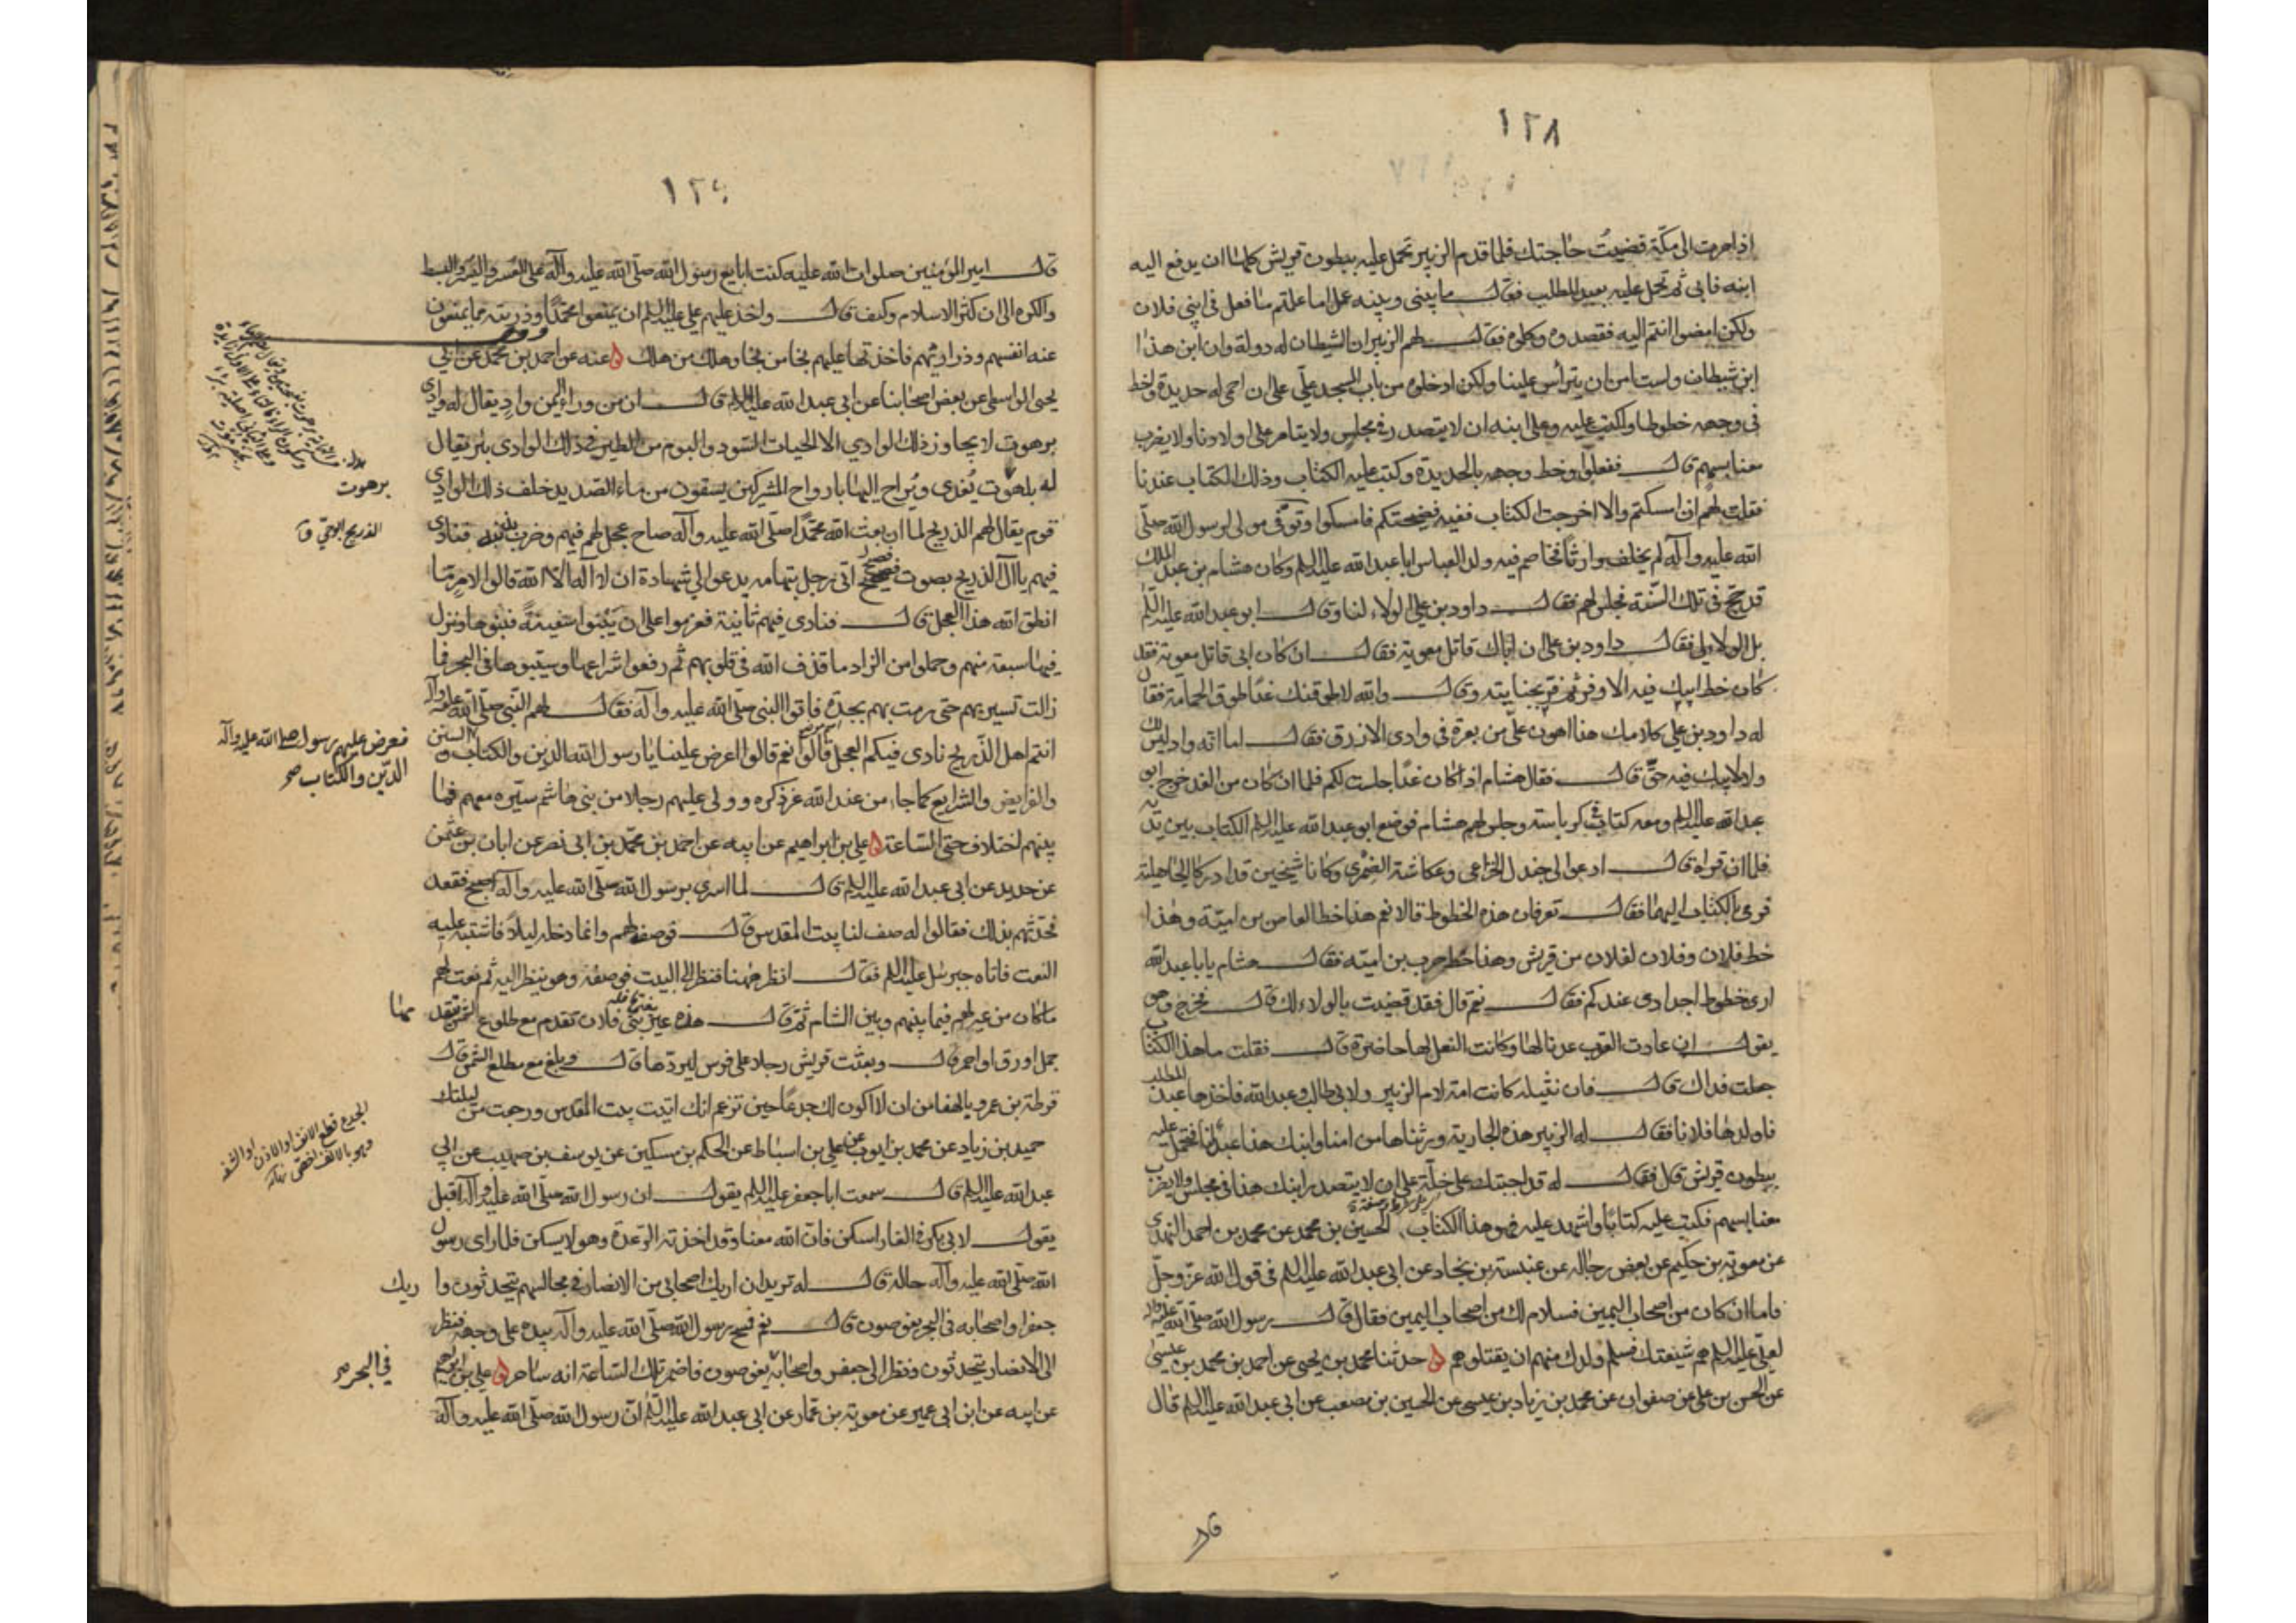 ١٢٨
اذا مرت الى مكة قضيت حاجتك فلما قدم الزبير تحمل عليه ببطون قريش كلها ان يدفع اليه
ابنه فابى ثم تحمل عليه بعبد المطلب فقال ما بيني وبينه عمل اما علمتم ما فعل في ابني فلان
ولكن امضوا انتم اليه فقصدوه وكلموه فقال لهم الزبير ان الشيطان له دولة وان ابن هذا
ابن شيطان ولست امن ان يترأس علينا ولكن ادخلوه من باب المسجد علي على ان احمى له حديدة واخط
في وجهه خطوطا واكتب عليه وعلى ابنه ان لا يتصدر في مجلس ولا يتامر على اولادنا ولا يضرب
معنا بسهم قال ففعلوا وخط وجهه بالحديدة وكتب عليه الكتاب وذلك الكتاب عندنا
فقلت لهم ان امسكتم والا اخرجت الكتاب ففيه فضيحتكم فامسكوا وتوفي مولى لرسول الله صلى
الله عليه وآله لم يخلف وارثا فخاصم فيه ولد العباس ابا عبد الله عليه السلم وكان هشام بن عبد الملك
قد حج في تلك السنة فجلس لهم فقال داود بن علي الولاء لنا وقال ابو عبد الله عليه السلم
بل الولاء لي فقال داود بن علي ان اباك قاتل معوية فقال ان كان ابي قاتل معوية فقد
كان حظ ابيك فيه الاوفر ثم فر بجنايته وقال والله لاطوقنك غدا طوق الحمامة فقال
له داود بن علي كلامك هذا اهون علي من بعرة في وادي الازرق فقال اما انه واد ليس لك
ولا لابيك فيه حق قال فقال هشام اذا كان غدا جلست لكم فلما ان كان من الغد خرج ابو
عبد الله عليه السلم ومعه كتاب في كرباسة وجلس لهم هشام فوضع ابو عبد الله عليه السلم الكتاب بين يديه
فلما ان قراه قال ادعوا لي جندل الخزاعي وعكاشة الضمري وكانا شيخين قد ادركا الجاهلية
فرمى بالكتاب اليهما فقال تعرفان هذه الخطوط قالا نعم هذا خط العاص بن امية وهذا
خط فلان وفلان لفلان من قريش وهذا خط حرب بن امية فقال هشام يا با عبد الله
ارى خطوط اجدادي عندكم فقال نعم قال فقد قضيت بالولاء لك قال فخرج وهو
يقول ان عادت العقرب عدنا لها وكانت النعل لها حاضرة قال فقلت ما هذا الكتاب
جعلت فداك قال فان نثيلة كانت امة لام الزبير ولابي طالب وعبد الله فاخذها عبد المطلب
فاولدها فلانا فقال له الزبير هذه الجارية ورثناها من امنا وابنك هذا عبد لنا فتحمل عليه
ببطون قريش قال فقال له قد اجبتك على خلة على ان لا يتصدر ابنك هذا في مجلس ولا يضرب
معنا بسهم فكتب عليه كتابا واشهد عليه فهو هذا الكتاب الحسين بن محمد عن محمد بن احمد النهدي
عن معوية بن حكيم عن بعض رجاله عن عنبسة بن بجاد عن ابي عبد الله عليه السلم في قول الله عز وجل
فاما ان كان من اصحاب اليمين فسلام لك من اصحاب اليمين فقال قال رسول الله صلى الله عليه وآله
لعلي عليه السلم هم شيعتك فسلم ولدك منهم ان يقتلوهم ه حدثنا محمد بن يحيى عن احمد بن محمد بن عيسى
عن الحسن بن علي عن صفوان عن محمد بن زياد بن عيسى عن الحسين بن مصعب عن ابي عبد الله عليه السلم قال
قال امير المؤمنين صلوات الله عليه كنت ابايع رسول الله صلى الله عليه وآله على العسر واليسر والبسط
والكره الى ان كثر الاسلام وكثف قال واخذ عليهم علي عليه السلم ان يمنعوا محمدا وذريته مما يمنعون
عنه انفسهم وذراريهم فاخذتها عليهم نجا من نجا وهلك من هلك ه عنه عن احمد بن محمد عن ابي
يحيى الواسطي عن بعض اصحابنا عن ابي عبد الله عليه السلم قال ان من وراء اليمن واد يقال له وادي
برهوت لا يجاوز ذلك الوادي الا الحيات السود والبوم من الطير في ذلك الوادي بئر يقال
له بلهوت يغدى ويراح اليها بارواح المشركين يسقون من ماء الصديد خلف ذلك الوادي
قوم يقال لهم الذريح لما ان بعث الله محمدا صلى الله عليه وآله صاح عجل لهم فيهم وضرب بذنبه فنادى
فيهم يا آل الذريح بصوت فصيح اتى رجل بتهامة يدعو الى شهادة ان لا اله الا الله قالوا لامر ما
انطق الله هذا العجل قال فنادى فيهم ثانية فعزموا على ان يبنوا سفينة فبنوها ونزل
فيها سبعة منهم وحملوا من الزاد ما قذف الله في قلوبهم ثم رفعوا شراعها وسيبوها في البحر فما
زالت تسير بهم حتى رمت بهم بجدة فاتوا النبي صلى الله عليه وآله فقال لهم النبي صلى الله عليه وآله
انتم اهل الذريح نادى فيكم العجل قالوا نعم قالوا اعرض علينا يا رسول الله الدين والكتاب والسنن
والفرايض والشرايع كما جاء من عند الله عز ذكره وولى عليهم رجلا من بني هاشم سيره معهم فما
بينهم اختلاف حتى الساعة ه علي بن ابراهيم عن ابيه عن احمد بن محمد بن ابي نصر عن ابان بن عثمن
عن حديد عن ابي عبد الله عليه السلم قال لما اسري برسول الله صلى الله عليه وآله اصبح فقعد
فحدثهم بذلك فقالوا له صف لنا بيت المقدس قال فوصف لهم وانما دخله ليلا فاشتبه عليه
النعت فاتاه جبرئيل عليه السلم فقال انظر ههنا فنظر الى البيت فوصفه وهو ينظر اليه ثم نعت لهم
ما كان من عير لهم فيما بينهم وبين الشام ثم قال هذه عير بني فلان تقدم مع طلوع الشمس يتقدمها
جمل اورق او احمر قال وبعثت قريش رجلا على فرس ليردها قال وبلغ مع مطلع الشمس قال
قرطة بن عمرو يا لهفا من ان لا اكون لك جدعا حين تزعم انك اتيت بيت المقدس ورجعت من ليلتك
حميد بن زياد عن محمد بن ايوب عن علي بن اسباط عن الحكم بن مسكين عن يوسف بن صهيب عن ابي
عبد الله عليه السلم قال سمعت ابا جعفر عليه السلم يقول ان رسول الله صلى الله عليه وآله اقبل
يقول لابي بكر في الغار اسكن فان الله معنا وقد اخذته الرعدة وهو لا يسكن فلما راى رسول
الله صلى الله عليه وآله حاله قال له تريد ان اريك اصحابي من الانصار في مجالسهم يتحدثون واريك
جعفرا واصحابه في البحر يغوصون قال نعم فمسح رسول الله صلى الله عليه وآله بيده على وجهه فنظر
الى الانصار يتحدثون ونظر الى جعفر واصحابه يغوصون فاضمر تلك الساعة انه ساحر ه علي بن ابرهيم
عن ابيه عن ابن ابي عمير عن معوية بن عمار عن ابي عبد الله عليه السلم ان رسول الله صلى الله عليه وآله
برهوت
الذريح ابو حي ق
فعرض عليهم رسول الله صلى الله عليه وآله
الدين والكتاب صح
الجدع قطع الانف او الاذن او الشفة
وهو بالانف اخص
في البحر صح